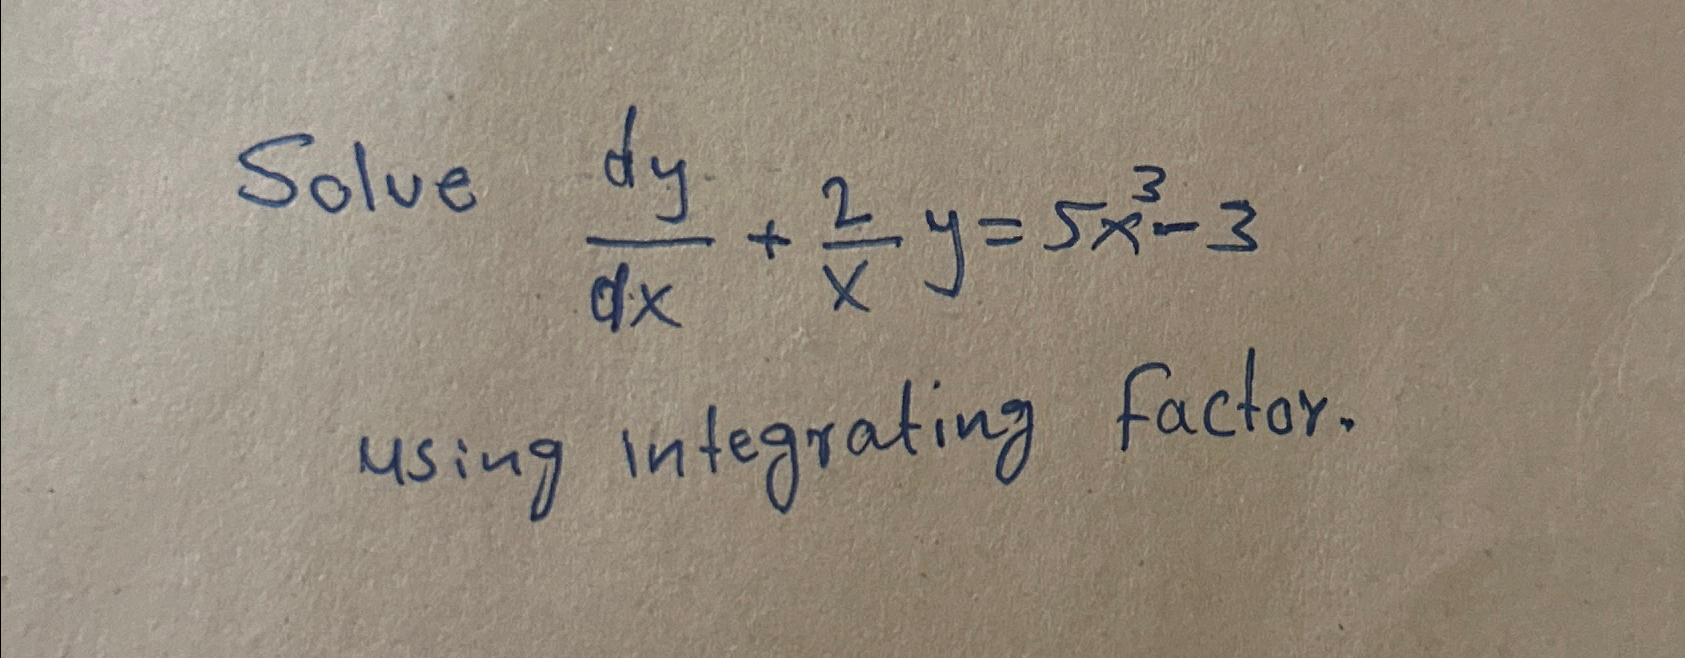 Solve dy/dx + 2/x y = 5x³ - 3
using integrating factor.